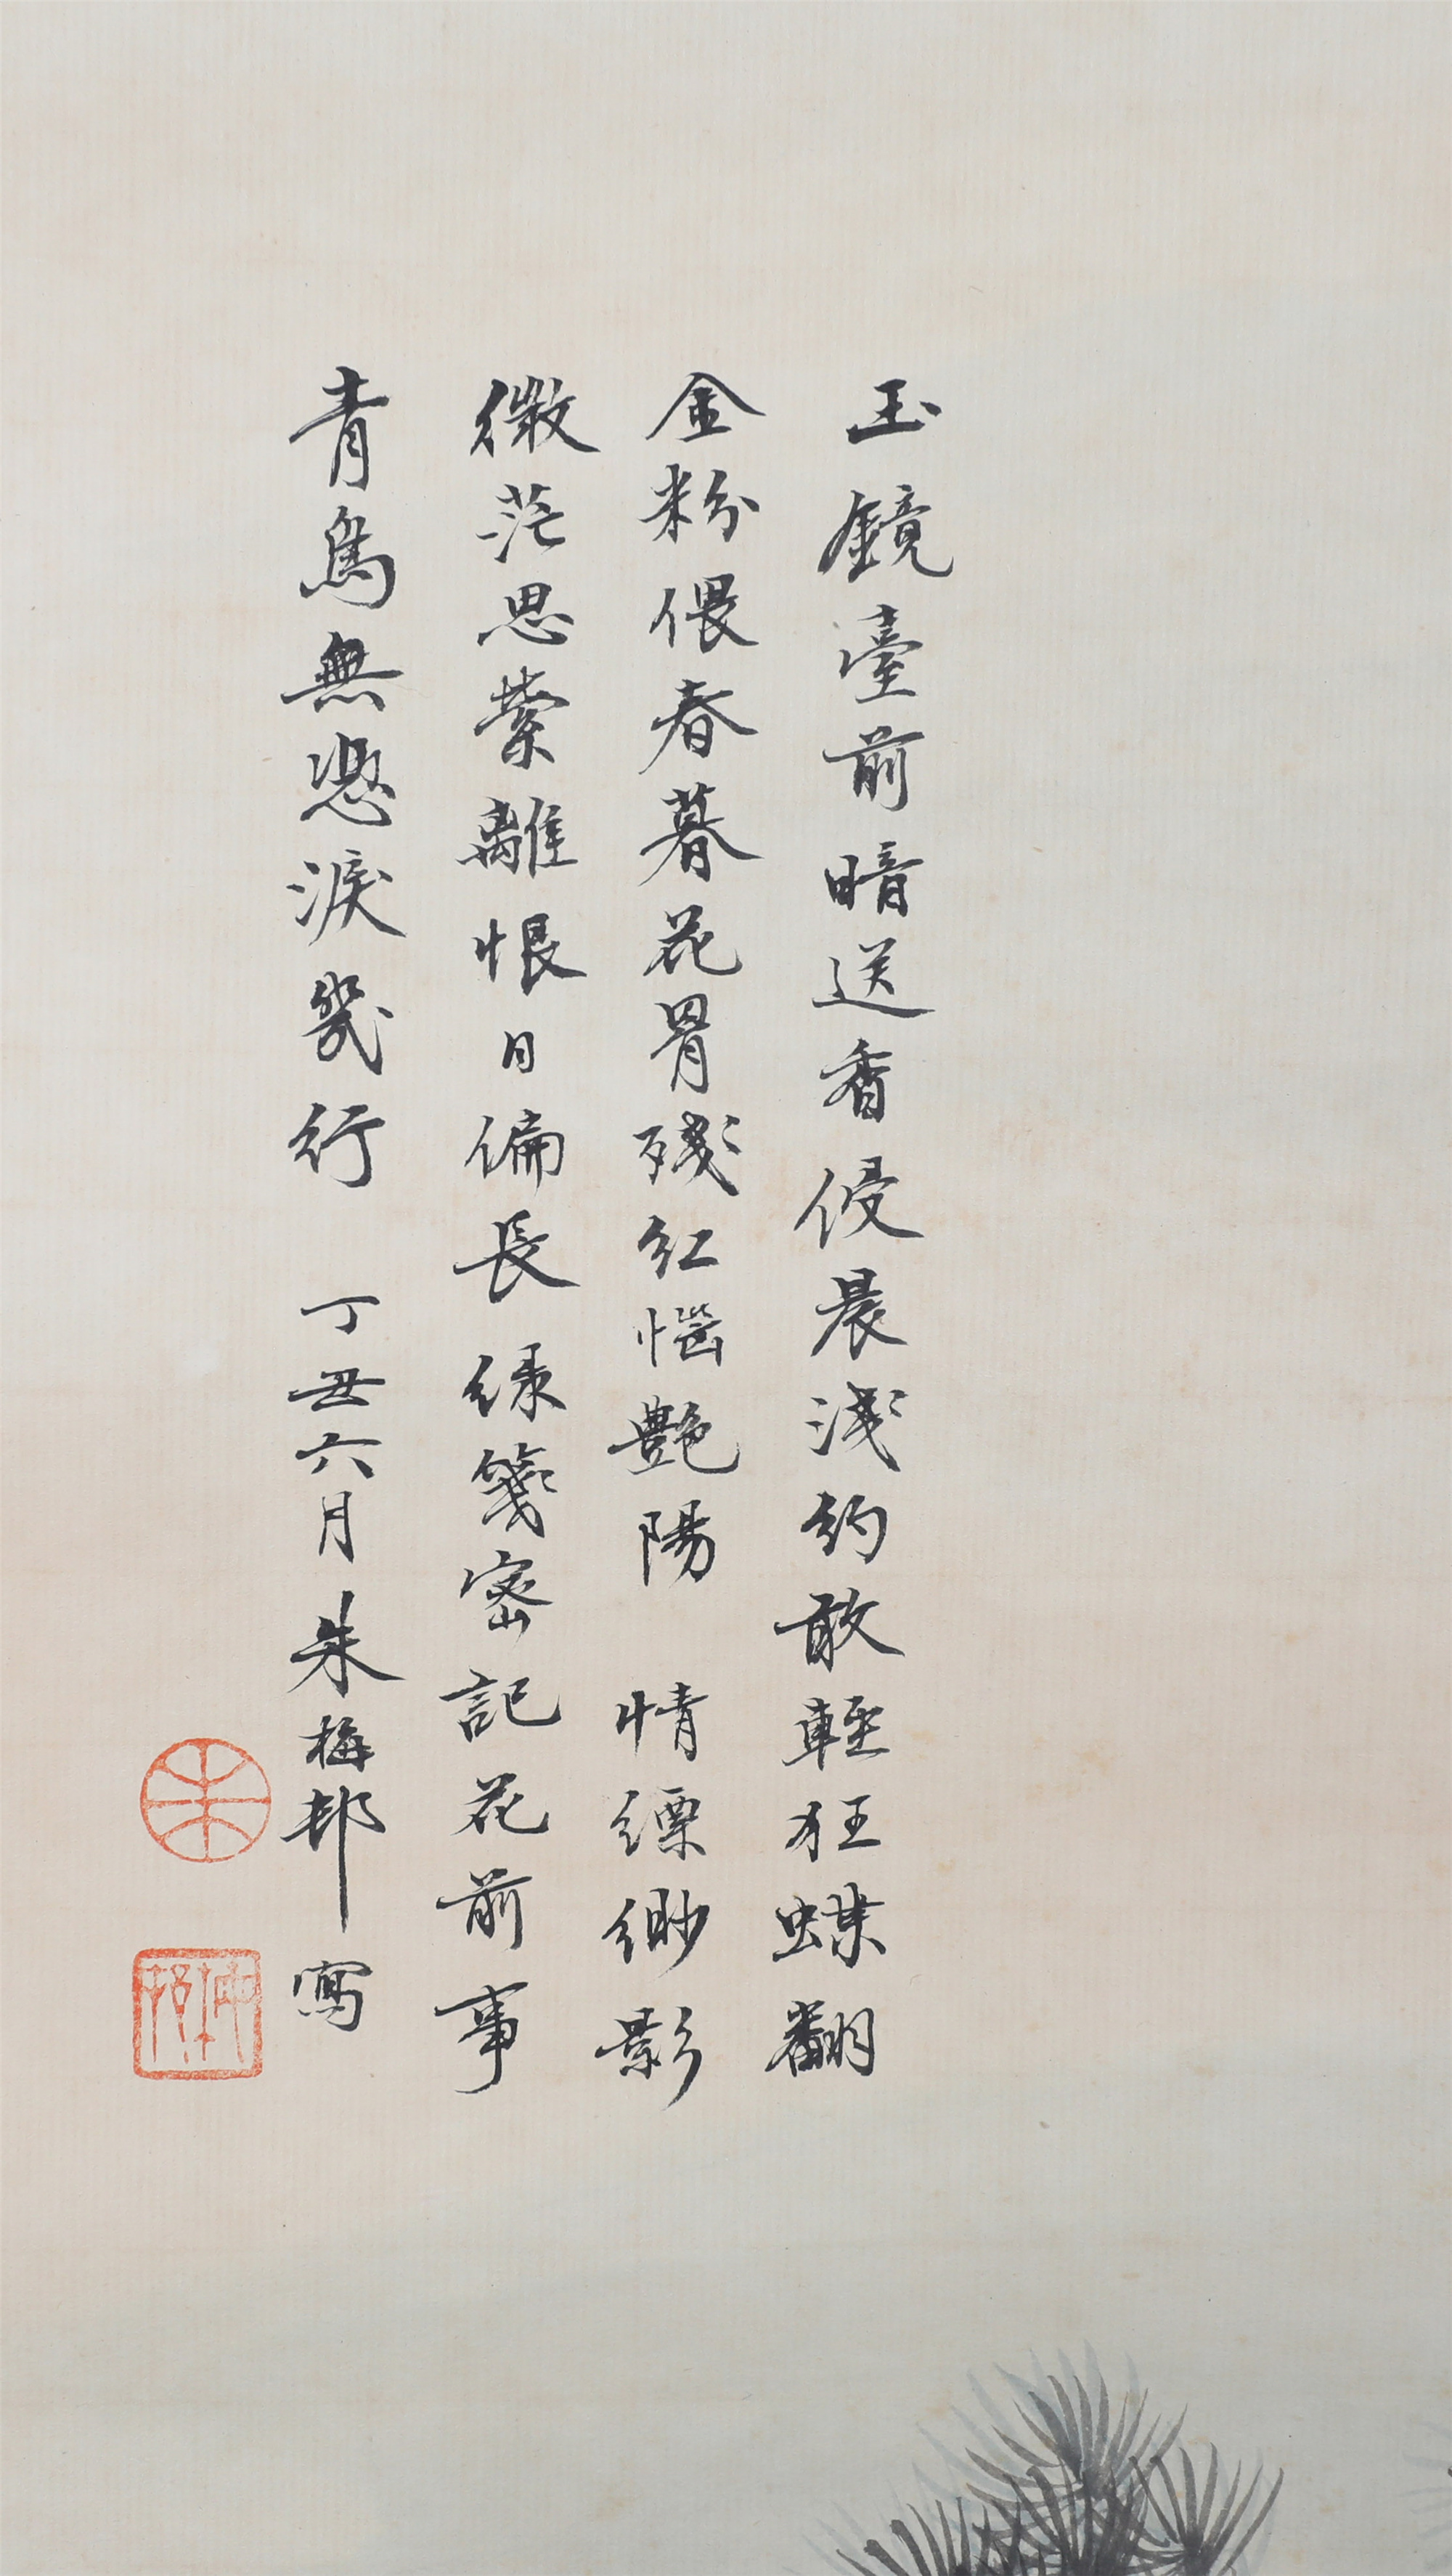 玉鏡臺前暗送香侵晨淺約敢輕狂蝶翻
金粉偎春暮花罥殘紅惱艷陽 情縹緲影
微茫思縈離恨日偏長綠箋密記花前事
青鳥無憑淚幾行 丁丑六月朱梅邨寫
朱
梅邨